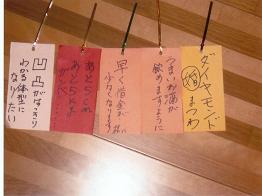 ダイヤモンド
まつわ
うまいお酒が
飲めますように
早く借金が
少なくなります
あと5cm
あと5kg
凹凸がはっきり
わかる体型に
なりたい